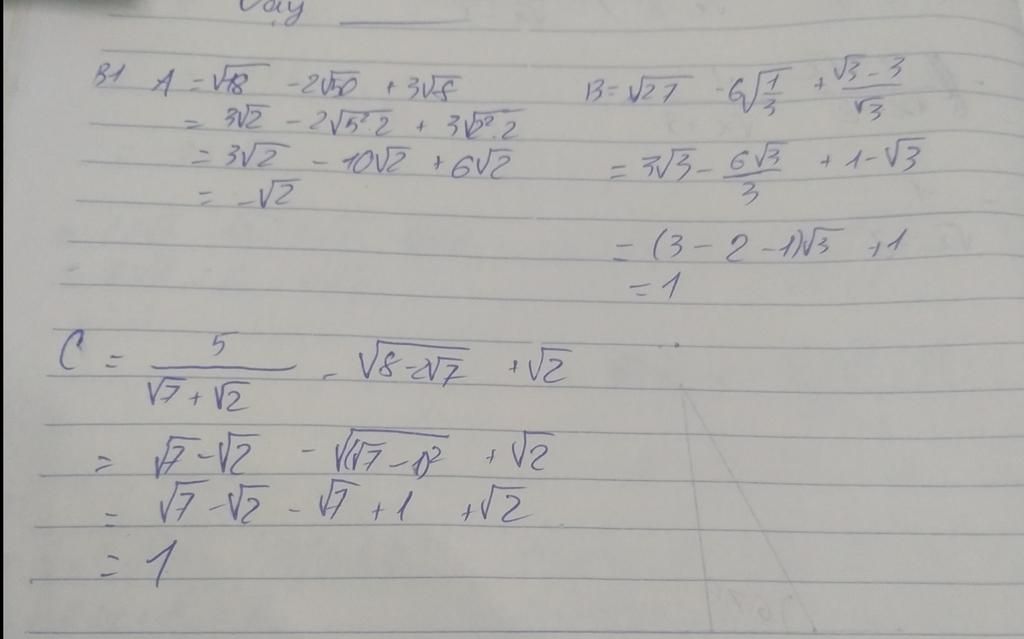 B1 A = √18 - 2√50 + 3√8
= 3√2 - 2√5².2 + 3√2².2
= 3√2 - 10√2 + 6√2
= -√2
B = √27 - 6√1/3 + (√3 - 3)/√3
= 3√3 - 6√3/3 + 1 - √3
= (3 - 2 - 1)√3 + 1
= 1
C = 5/(√7 + √2) - √(8 - 2√7) + √2
= √7 - √2 - √(√7 - 1)² + √2
= √7 - √2 - √7 + 1 + √2
= 1